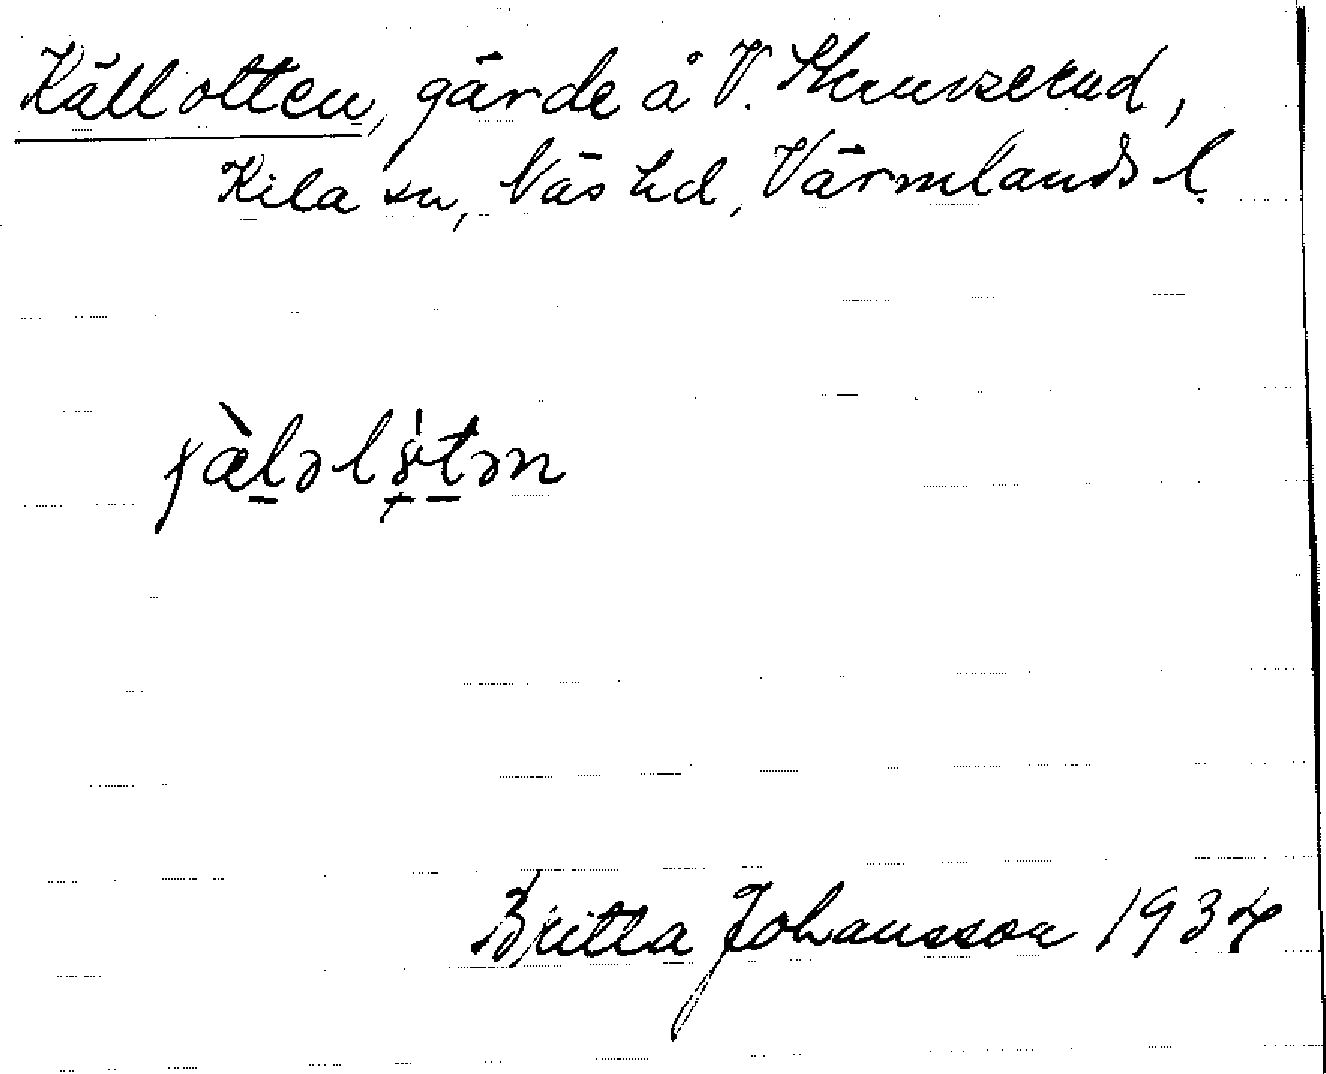 Källotten, gärde å V.
Kila sn, Näs hd, Värmlands l.
Britta Johansson 1934